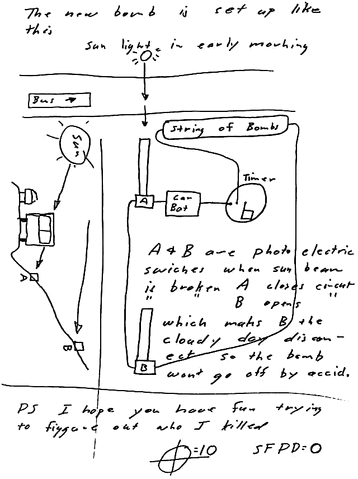 The new bomb is set up like
this
sun light in early morning
Bus
Sun
String of Bombs
Timer
A
Car
Bat
A
B
A & B are photo electric
swiches when sun beam
is broken A closes circut
" " B opens "
which mahs B the
cloudy day discon-
ect so the bomb
wont go off by accid.
B
PS I hope you have fun trying
to figgure out who I killed
=10 SFPD=0